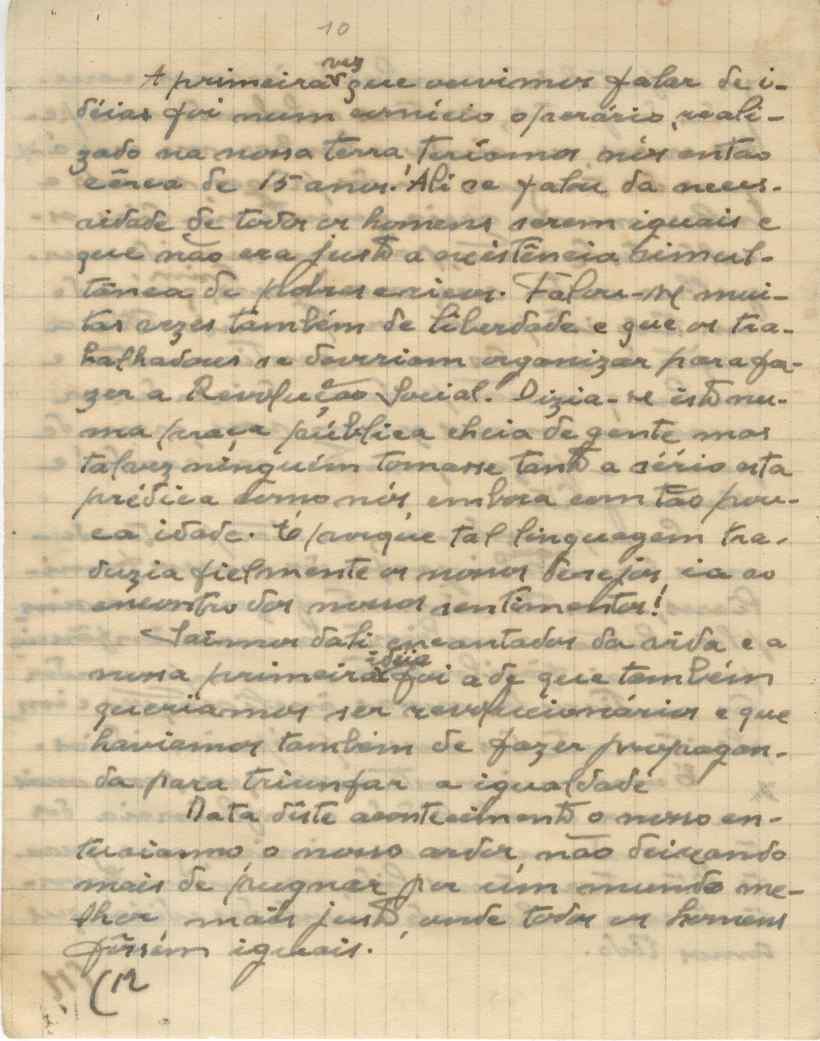 10
A primeira vez que ouvimos falar de i-
déias foi num comício operário, reali-
zado na nossa terra, teríamos nós então
cêrca de 15 anos. Ali se falou da neces-
sidade de todos os homens serem iguais e
que não era justo a existência simul-
tânea de pobres e ricos. Falou-se mui-
tas vezes também de liberdade e que os tra-
balhadores se deveriam organizar para fa-
zer a Revolução Social. Dizia-se isto nu-
ma praça pública cheia de gente mas
talvez ninguém tomasse tanto a sério esta
prédica como nós, embora com tão pou-
ca idade. É porque tal linguagem tra-
duzia fielmente os nossos desejos, ia ao
encontro dos nossos sentimentos!
Saímos dali encantados da vida e a
nossa primeira idéia foi a de que também
queriamos ser revolucionários e que
haviamos também de fazer propagan-
da para triunfar a igualdade
Data dêste acontecimento o nosso en-
tusiasmo, o nosso ardor, não deixando
mais de pugnar por um mundo me-
lhor mais justo, onde todos os homens
fôssem iguais.